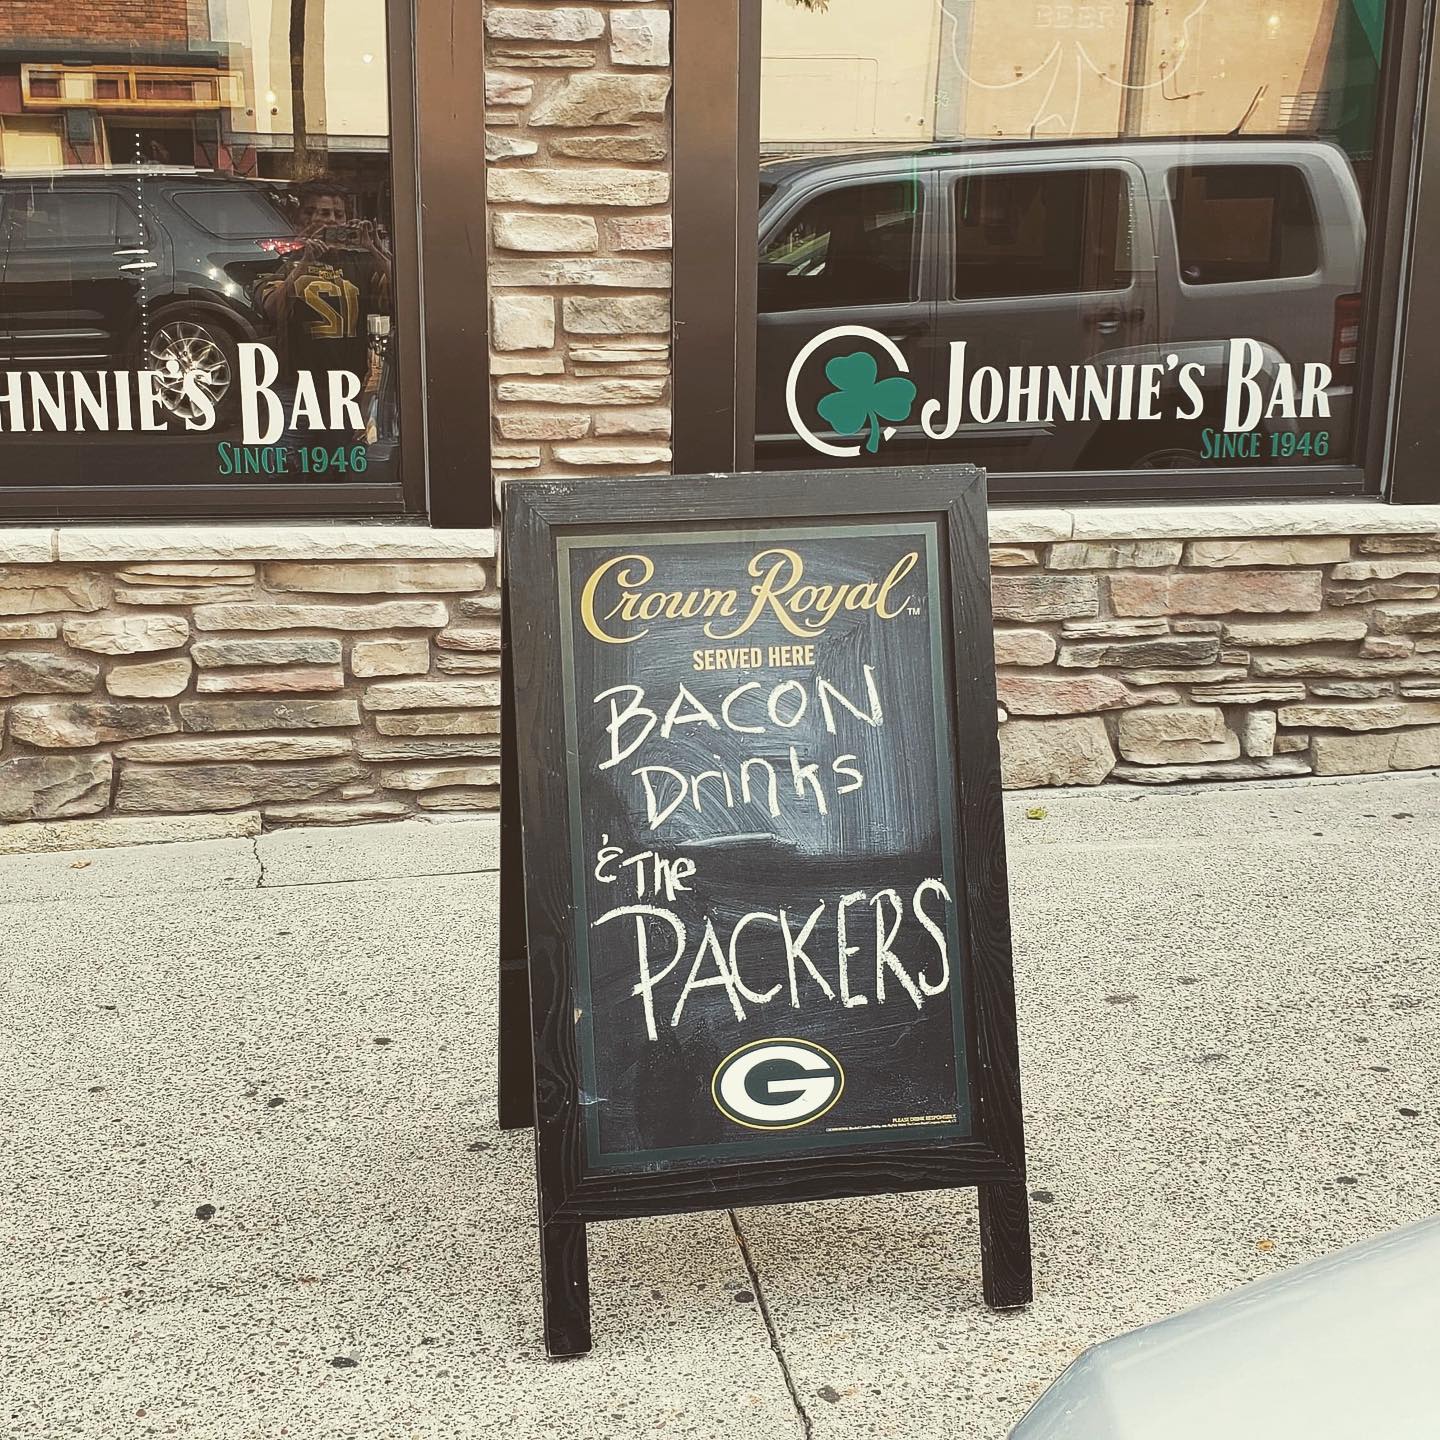 BEER
HNNIE'S BAR
SINCE 1946
JOHNNIE'S BAR
SINCE 1946
12
Crown Royal™
SERVED HERE
BACON
Drinks
& The
PACKERS
G
PLEASE DRINK RESPONSIBLY.